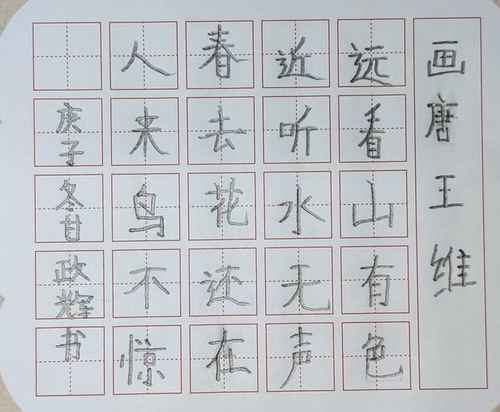 画唐王维
远看山有色
近听水无声
春去花还在
人来鸟不惊
庚子冬甘政辉书